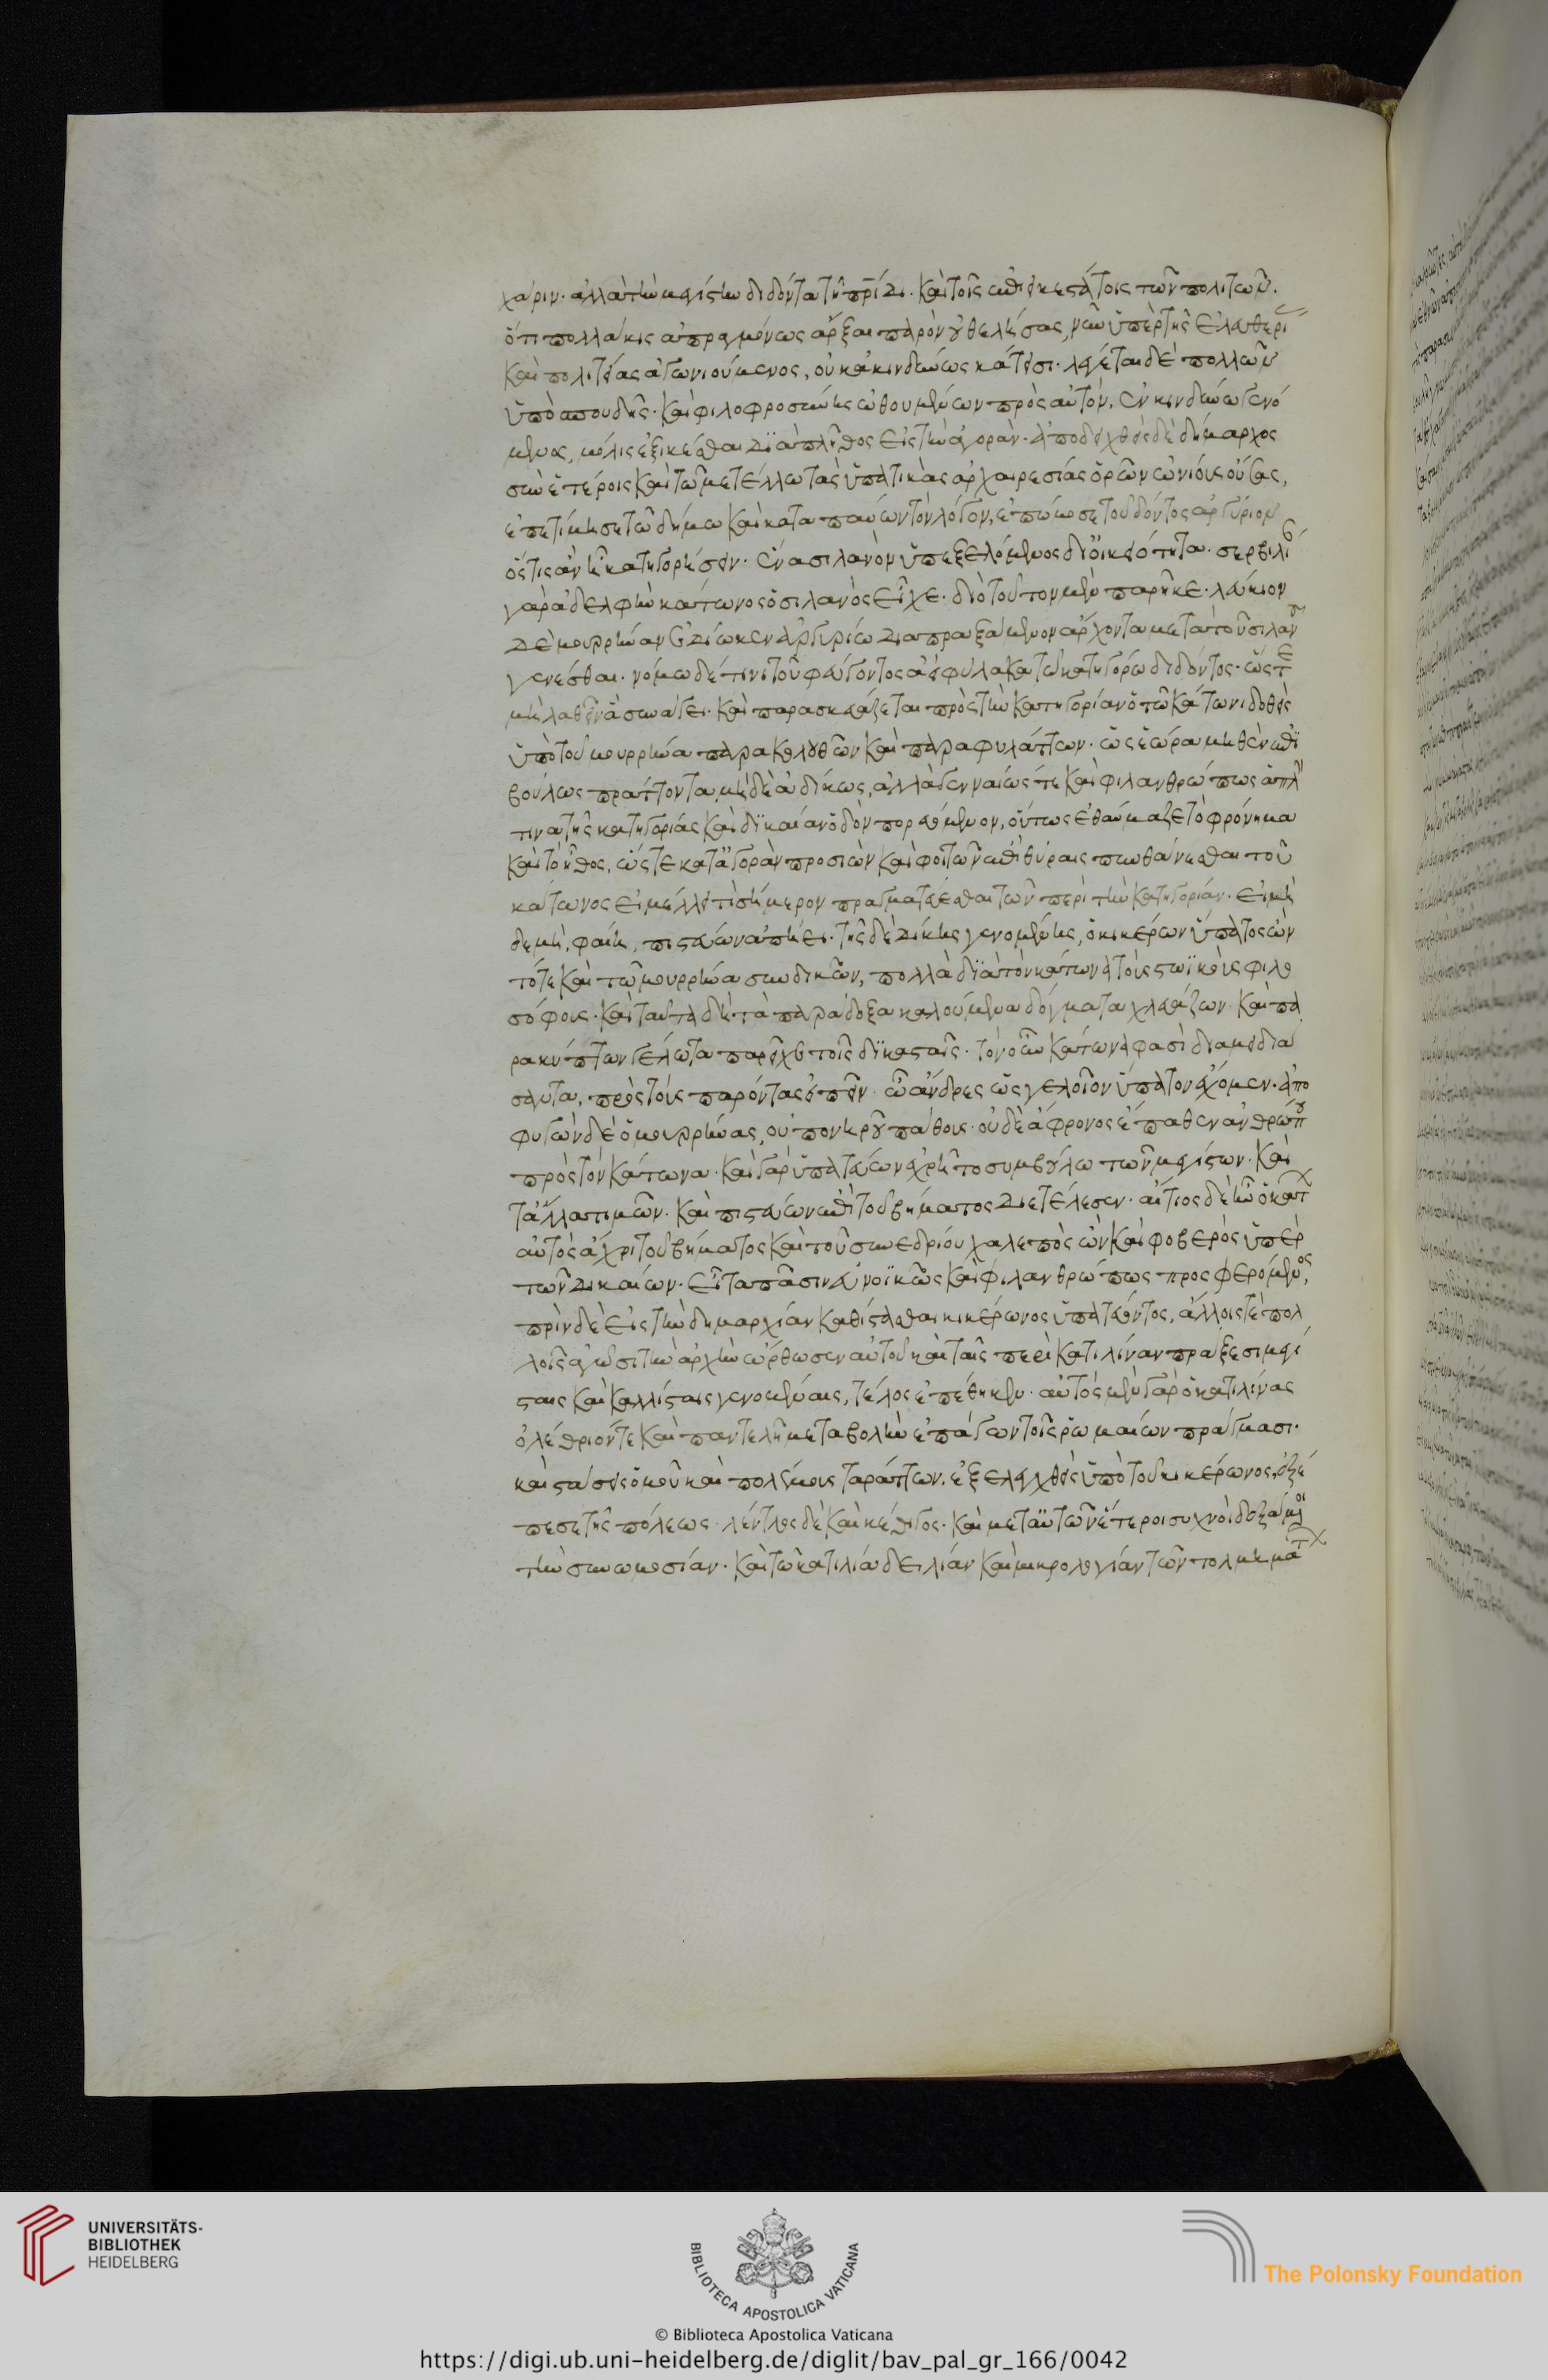 χάριν· ἀλλὰ τὴν μεγίστην διδόντα τῆ πρίδι. καὶ τοῖς ἐπιεικεστάτοις τῶν πολιτῶν.
ὅτι πολλάκις ἀπραγμόνως ἄρξαι παρὸν οὐ θελήσας, νῦν ὑπὲρ τῆς ἐλευθερί
καὶ πολιτείας ἀγωνιούμενος, οὐκ ἀκινδύνως κάτεισι. λέγεται δὲ πολλῶν
ὑπὸ σπουδῆς· καὶ φιλοφροσύνης ὠθουμένων πρὸς αὐτὸν, ἐν κινδύνω γενό
μενος, μόλις ἐξικέσθαι διὰ πλῆθος εἰς τὴν ἀγοράν. ἀποδειχθεὶς δὲ δήμαρχος
σὺν ἑτέροις καὶ τῶ μετέλλω τὰς ὑπατικὰς ἀρχαιρεσίας ὁρῶν ὠνίους οὔσας,
ἐπετίμησε τῶ δήμω καὶ καταπαύων τὸν λόγον, ἐπώμοσε τοῦ δόντος ἀργύριον
ὅστις ἂν ἦ κατηγορήσειν. ἕνα σιλανὸν ὑπεξελόμενος δι' οἰκειότητα. σερβιλί
γὰρ ἀδελφὴν κάτωνος ὁ σιλανὸς εἶχε. διὸ τοῦτον μὲν παρῆκε. λεύκιον
δὲ μουρρήναν ἐδίωκεν ἀργυρίω διαπραξάμενον ἄρχοντα μετὰ τοῦ σιλανοῦ
γενέσθαι. νόμω δέ τινι τοῦ φεύγοντος ἀεὶ φύλακα τῶ κατηγόρω διδόντος. ὥστε
μὴ λαθεῖν ἃ συνάγει. καὶ παρασκευάζεται πρὸς τὴν κατηγορίαν ὁ τῶ κάτωνι δοθεὶς
ὑπὸ τοῦ μουρρήνα παρακολουθῶν καὶ παραφυλάττων. ὡς ἑώρα μηθὲν ἐπι
βούλως πράττοντα, μηδὲ ἀδίκως, ἀλλὰ γενναίως τε καὶ φιλανθρώπως ἁπλῆ
τινα τῆς κατηγορίας καὶ δικαίαν ὁδὸν πορευόμενον, οὕτως ἐθαύμαζε τὸ φρόνημα
καὶ τὸ ἦθος, ὥστε κατ' ἀγορὰν προσιὼν καὶ φοιτῶν ἐπὶ θύραις πυνθάνεσθαι τοῦ
κάτωνος εἰ μέλλει τὶ σήμερον πραγματεύεσθαι τῶν περὶ τὴν κατηγορίαν. εἰ μὴ
δὲ μὴ, φαίη, πιστεύων ἀπήει. τῆς δὲ δίκης γενομένης, ὁ κικέρων ὕπατος ὢν
τότε καὶ τῶ μουρρήνα συνδικῶν, πολλὰ διὰ τὸν κάτωνα τοὺς στωϊκοὺς φιλο
σόφους. καὶ ταῦτα δὴ τὰ παράδοξα καλούμενα δόγματα χλευάζων. καὶ πα
ρακύπτων γέλωτα παρεῖχε τοῖς δικασταῖς. τὸν οὖν κάτωνα φασὶ διαμειδιά
σαντα, πρὸς τοὺς παρόντας εἰπεῖν. ὦ ἄνδρες ὡς γελοῖον ὕπατον ἔχομεν. ἀπο
φυγὼν δὲ ὁ μουρρήνας, οὐ πονηροῦ πάθους. οὐδὲ ἄφρονος ἔπαθεν ἀνθρώπου
πρὸς τὸν κάτωνα. καὶ γὰρ ὑπατεύων ἐχρῆτο συμβούλω τῶν μεγίστων. καὶ
τἆλλα τιμῶν. καὶ πιστεύων ἐπὶ τοῦ βήματος διετέλεσεν. αἴτιος δὲ ἦν ὁ κάτων
αὐτὸς ἄχρι τοῦ βήματος καὶ τοῦ συνεδρίου χαλεπὸς ὢν καὶ φοβερὸς ὑπὲρ
τῶν δικαίων. εἶτα πᾶσιν εὐνοϊκῶς καὶ φιλανθρώπως προσφερόμενος,
πρὶν δὲ εἰς τὴν δημαρχίαν καθίστασθαι κικέρωνος ὑπατεύοντος, ἄλλοις τε πολ
λοῖς ἀγῶσι τὴν ἀρχὴν ὤρθωσεν αὐτοῦ καὶ ταῖς περὶ κατιλίναν πράξεσι μεγί
σταις καὶ καλλίσταις γενομέναις, τέλος ἐπέθηκεν. αὐτὸς μὲν γὰρ ὁ κατιλίνας
ὀλέθριόν τε καὶ παντελῆ μεταβολὴν ἐπάγων τοῖς ῥωμαίων πράγμασι.
καὶ στάσεις ὁμοῦ καὶ πολέμους ταράττων, ἐξελεγχθεὶς ὑπὸ τοῦ κικέρωνος, ἐξέ
πεσε τῆς πόλεως. λέντλος δὲ καὶ κέθηγος. καὶ μετ' αὐτῶν ἕτεροι συχνοὶ δεξάμενοι
τὴν συνωμοσίαν. καὶ τῶ κατιλίνα δειλίαν καὶ μικρολογίαν τῶν τολμημάτων
UNIVERSITÄTS-
BIBLIOTHEK
HEIDELBERG
BIBLIOTECA APOSTOLICA VATICANA
The Polonsky Foundation
© Biblioteca Apostolica Vaticana
https://digi.ub.uni-heidelberg.de/diglit/bav_pal_gr_166/0042